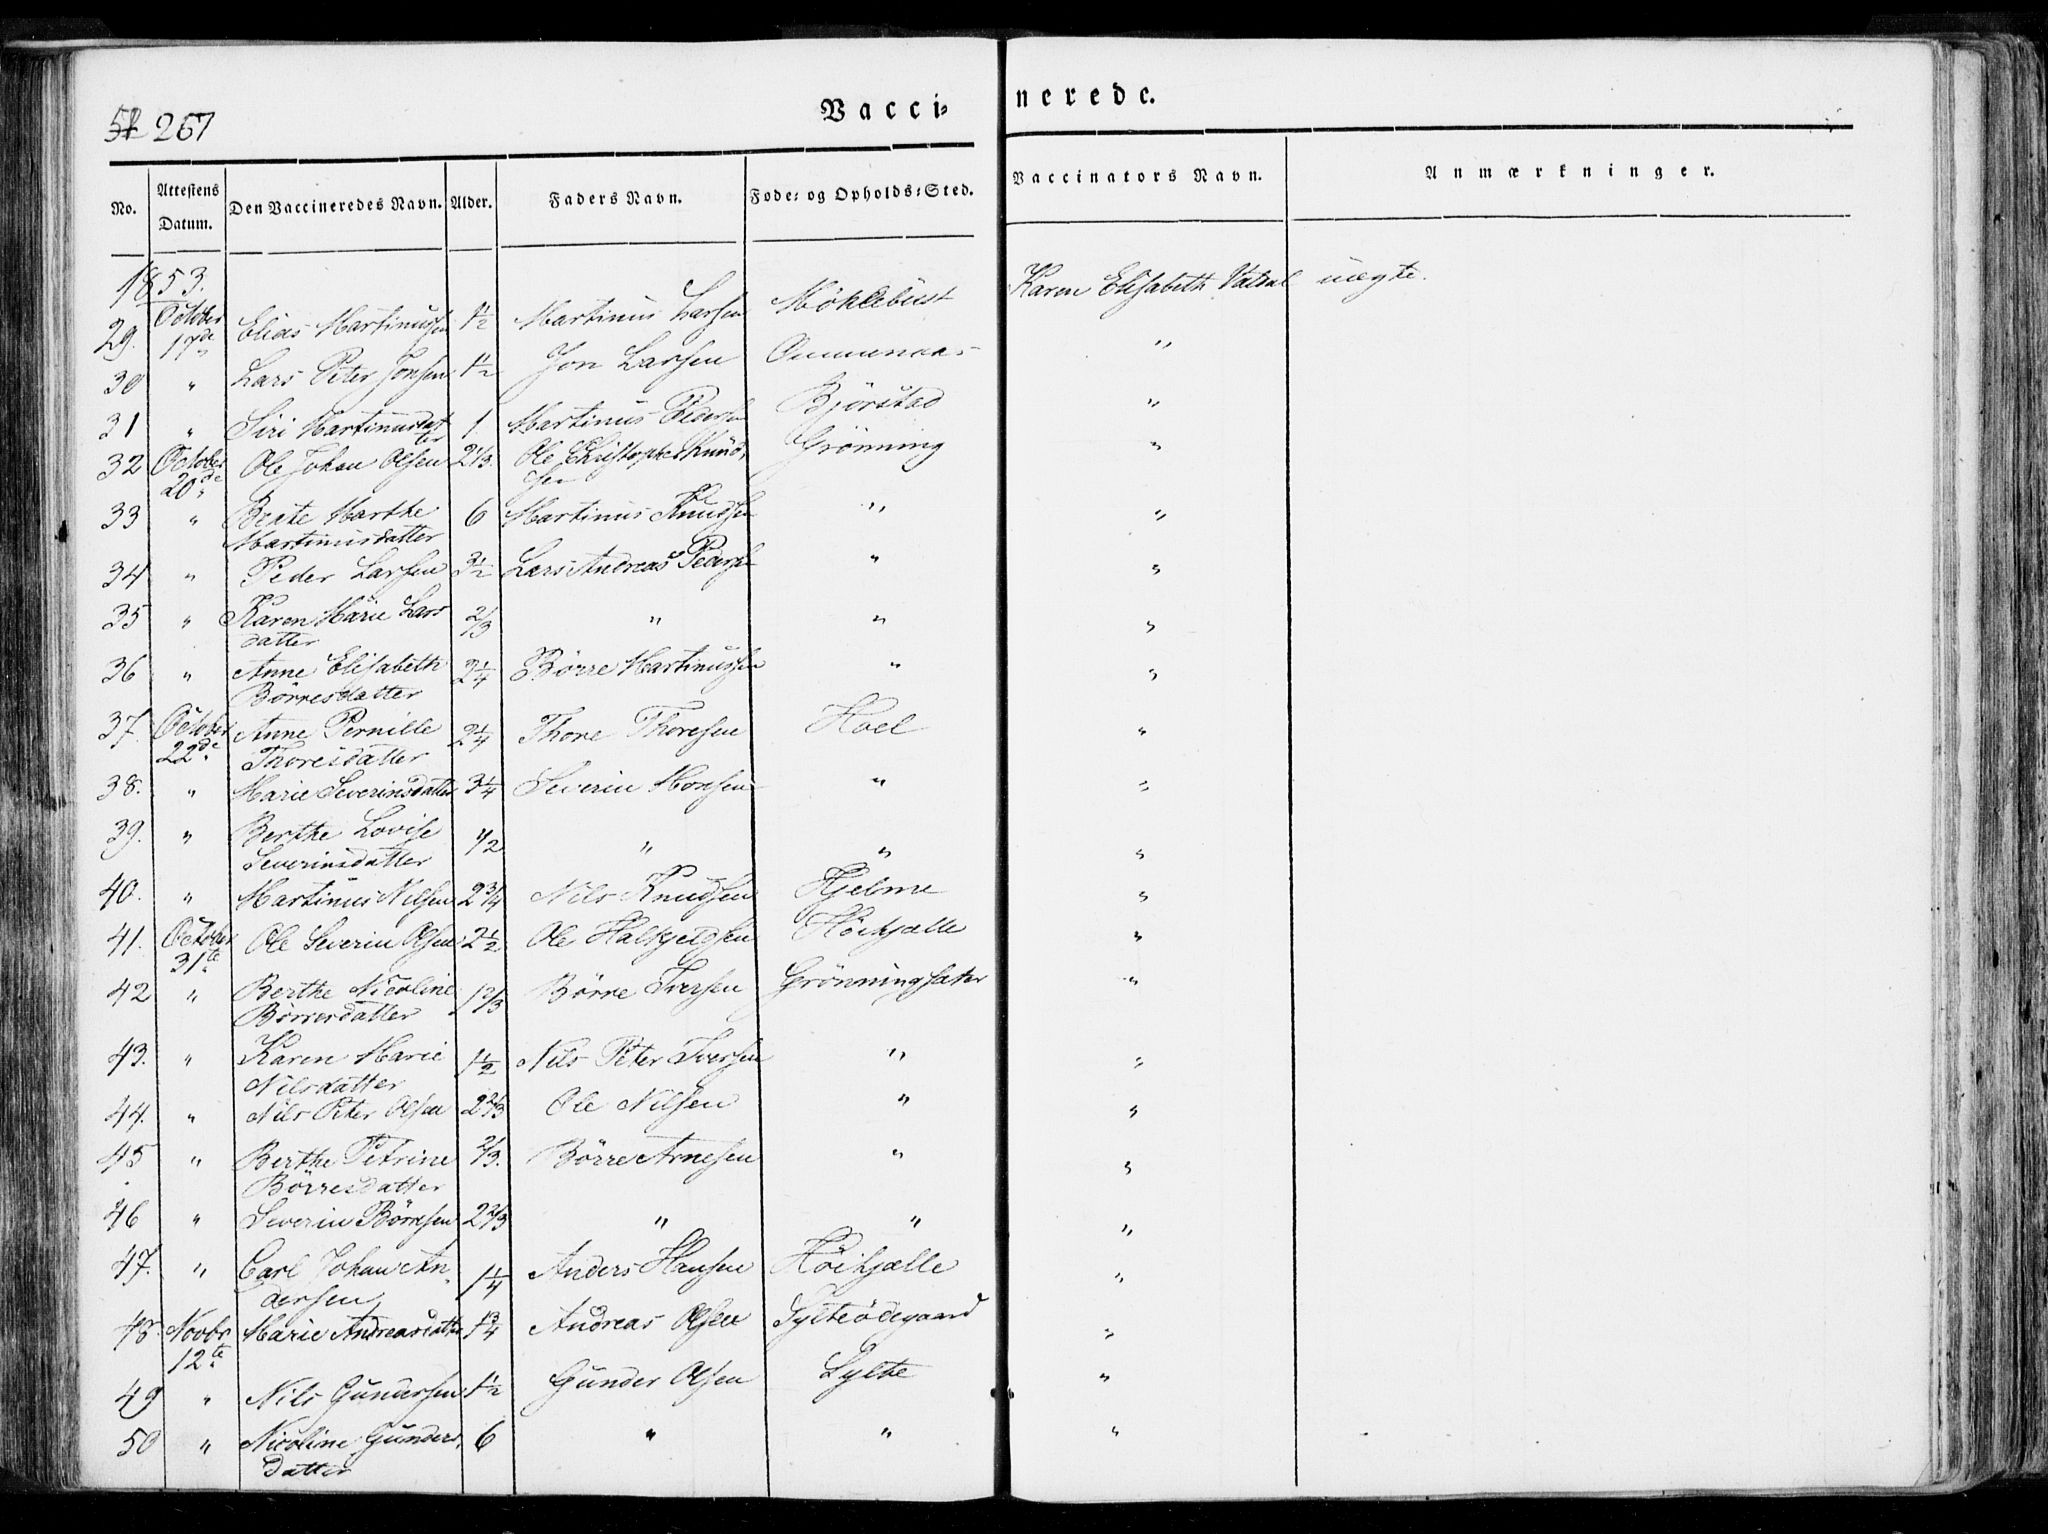 267
Vacci=nerede.
No. Attestens Datum. Den Vaccineredes Navn. Alder. Faders Navn. Føde= og Opholds=Sted. Vaccinators Navn. Anmærkninger.
1853.
29. October 17de Elias Martinussen 1½ Martinus Larsen Möklebust Karen Elisabeth Vatdal uægte.
30 " Lars Peter Jonsen 1½ Jon Larsen "
31 " Siri Martinusdatter 1 Martinus Pedersen Björstad "
32 October 20de Ole Johan Olsen 2⅓. Ole Christopher Knudsen Grönning "
33 " Berte Marthe Martinusdatter 6 Martinus Knudsen " "
34 " Peder Larsen 3½ Lars Andreas Pedersen " "
35 " Karen Marie Larsdatter ⅔ " " "
36 " Anne Elisabeth Börresdatter 2¼ Börre Martinussen " "
37. October 22de Anne Pernille Thoresdatter 2¼ Thore Thoresen Hoel "
38. " Marie Severinsdatter 3¼ Severin Monsen " "
39. " Berthe Lovise Severinsdatter ½ " " "
40. " Martinus Nilsen 2¾ Nils Knudsen Hjelme "
41. October 31te Ole Severin Olsen 2½ Ole Halkjeldsen Höihjelle "
42 " Berthe Nicoline Börresdatter 1⅔ Börre Iversen Grönningsæter "
43. " Karen Marie Nilsdatter 1½ Nils Peter Iversen " "
44. " Nils Peter Olsen 2⅔ Ole Nilsen " "
45 " Berthe Petrine Börresdatter ⅔. Börre Arnesen " "
46 " Severin Börresen 2⅔ " " "
47. " Carl Johan Andersen 1¼ Anders Hansen Höihjælle "
48. Novbr 12te Marie Andreasdatter 1¾ Andreas Olsen Sylteödegaard "
49 " Nils Gundersen 1½ Gunder Olsen Sylte "
50 " Nicoline Gundersdatter 6 " " "